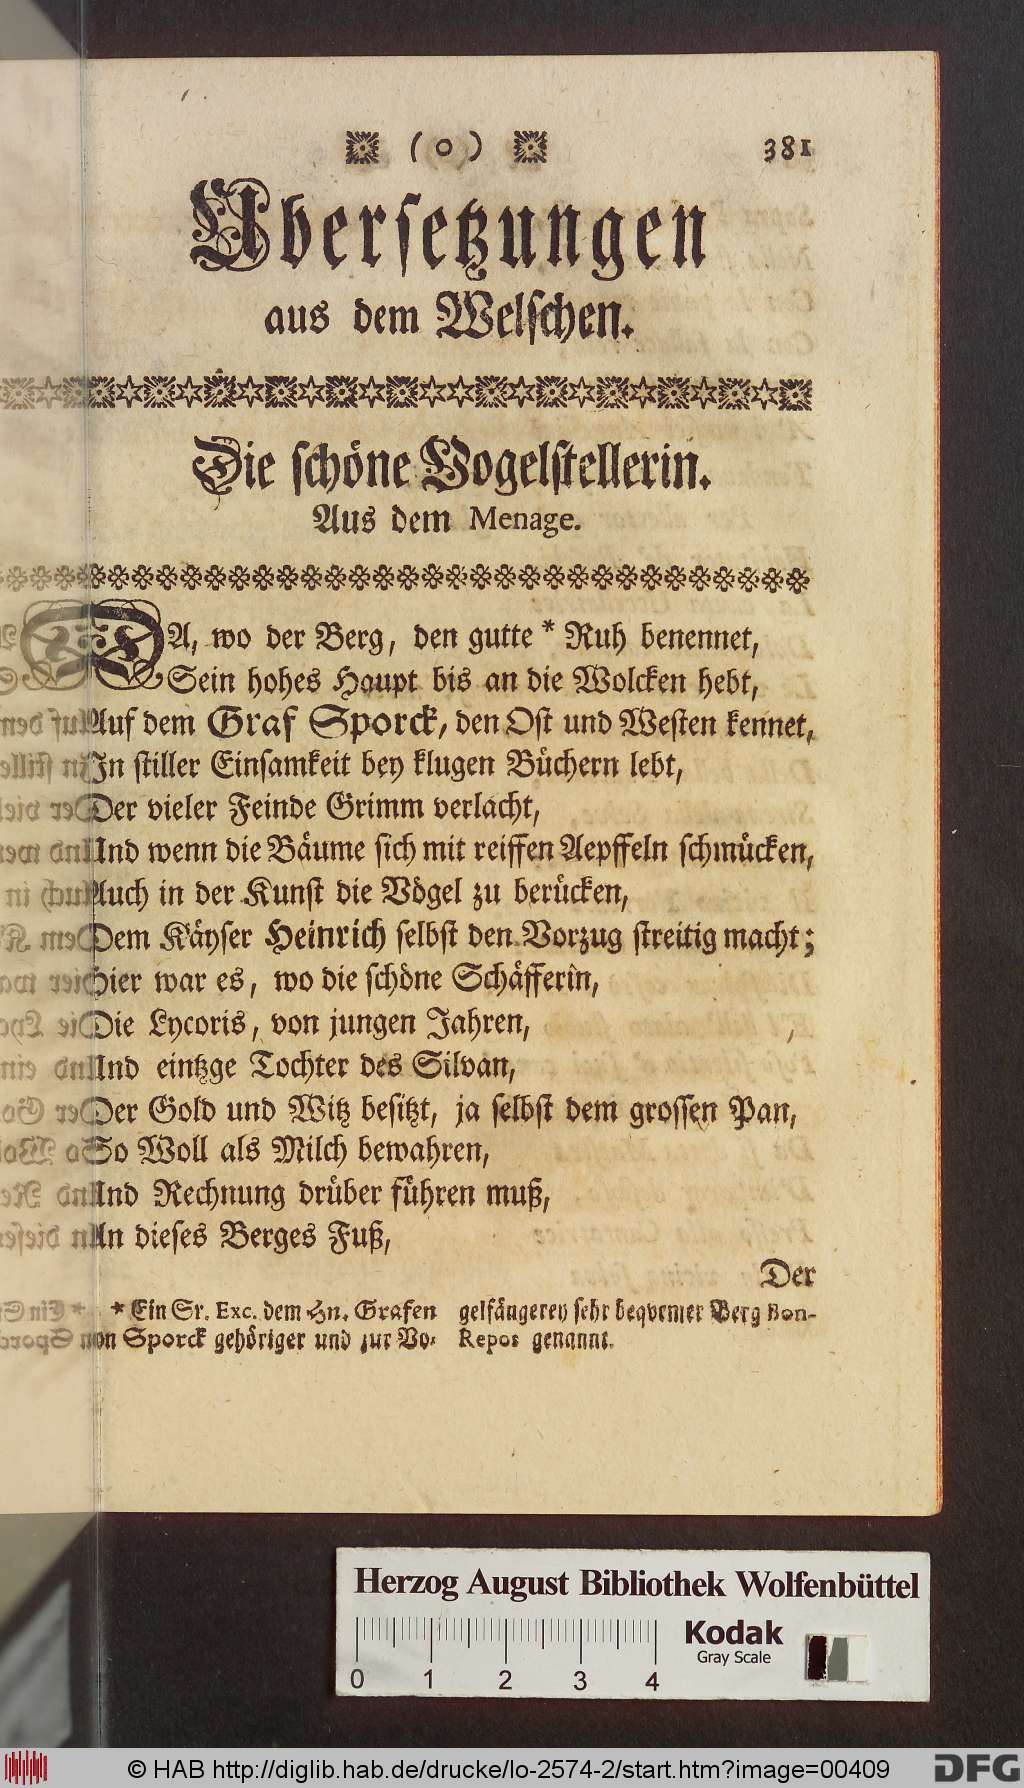 ( o ) 381
Übersetzungen
aus dem Welschen.
Die schöne Vogelstellerin.
Aus dem Menage.
DA, wo der Berg, den gutte * Ruh benennet,
Sein hohes Haupt bis an die Wolcken hebt,
Auf dem Graf Sporck, den Ost und Westen kennet,
In stiller Einsamkeit bey klugen Büchern lebt,
Der vieler Feinde Grimm verlacht,
Und wenn die Bäume sich mit reiffen Aepffeln schmücken,
Auch in der Kunst die Vögel zu berücken,
Dem Käyser Heinrich selbst den Vorzug streitig macht;
Hier war es, wo die schöne Schäfferin,
Die Lycoris, von jungen Jahren,
Und eintzge Tochter des Silvan,
Der Gold und Witz besitzt, ja selbst dem grossen Pan,
So Woll als Milch bewahren,
Und Rechnung drüber führen muß,
An dieses Berges Fuß,
Der
* Ein Sr. Exc. dem Hn. Grafen
von Sporck gehöriger und zur Vo-
gelfängerey sehr beqvemer Berg Bon-
Repos genannt.
Herzog August Bibliothek Wolfenbüttel
Kodak
Gray Scale
0 1 2 3 4
© HAB http://diglib.hab.de/drucke/lo-2574-2/start.htm?image=00409
DFG